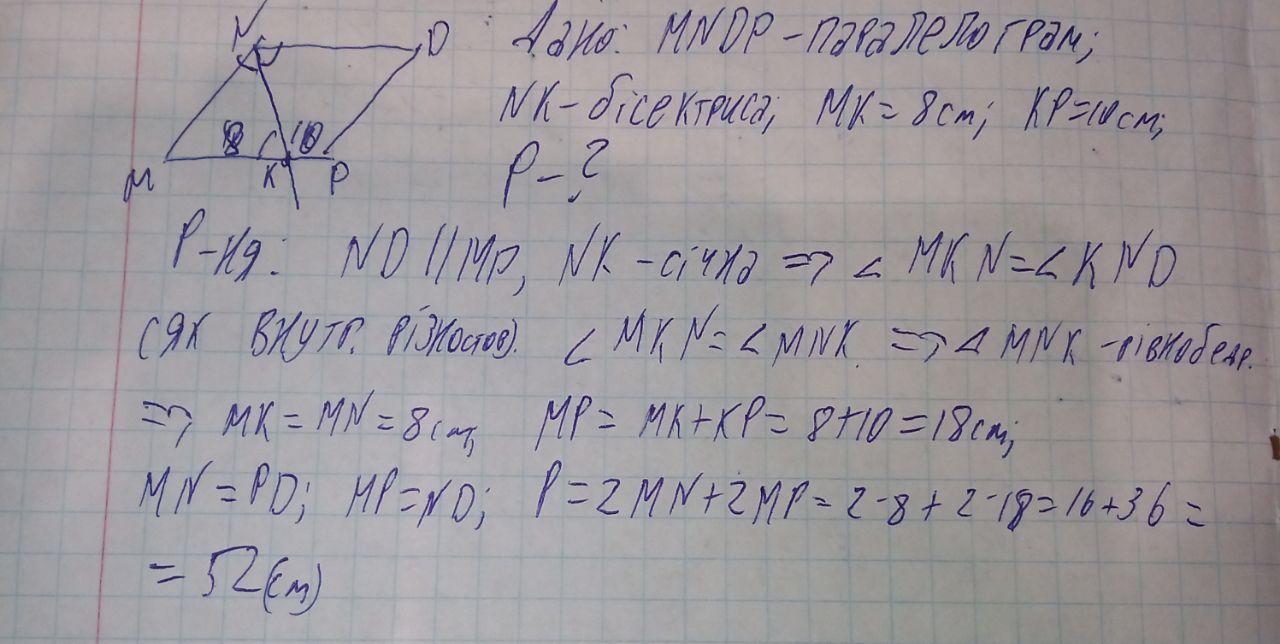 N D
8 10
M K P
Дано: MNDP - паралелограм;
NK - бісектриса; MK = 8 см; KP = 10 см;
P - ?
Р-ня: ND || MP, NK - січна => ∠ MKN = ∠ KND
(як внутр. різностор). ∠ MKN = ∠ MNK => △ MNK - рівнобедр.
=> MK = MN = 8 см; MP = MK + KP = 8 + 10 = 18 см;
MN = PD; MP = ND; P = 2MN + 2MP = 2·8 + 2·18 = 16 + 36 =
= 52 (см)